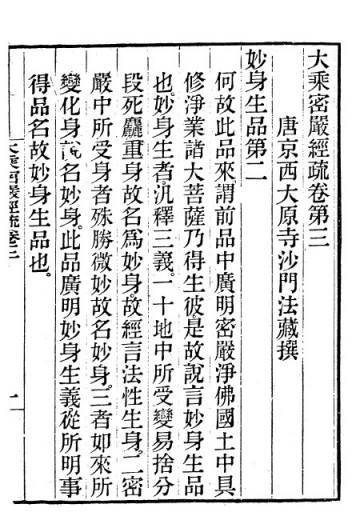 大乘密嚴經疏卷第三
唐京西大原寺沙門法藏撰
妙身生品第二
何故此品來謂前品中廣明密嚴淨佛國土中具
修淨業諸大菩薩乃得生彼是故說言妙身生品
也妙身生者汎釋三義。一十地中所受變易捨分
段死麤重身故名爲妙身故經言法性生身。二密
嚴中所受身者殊勝微妙故名妙身。三者如來所
變化身名妙身。此品廣明妙身生義從所明事
得品名故妙身生品也。
大乘密嚴經疏卷三
一